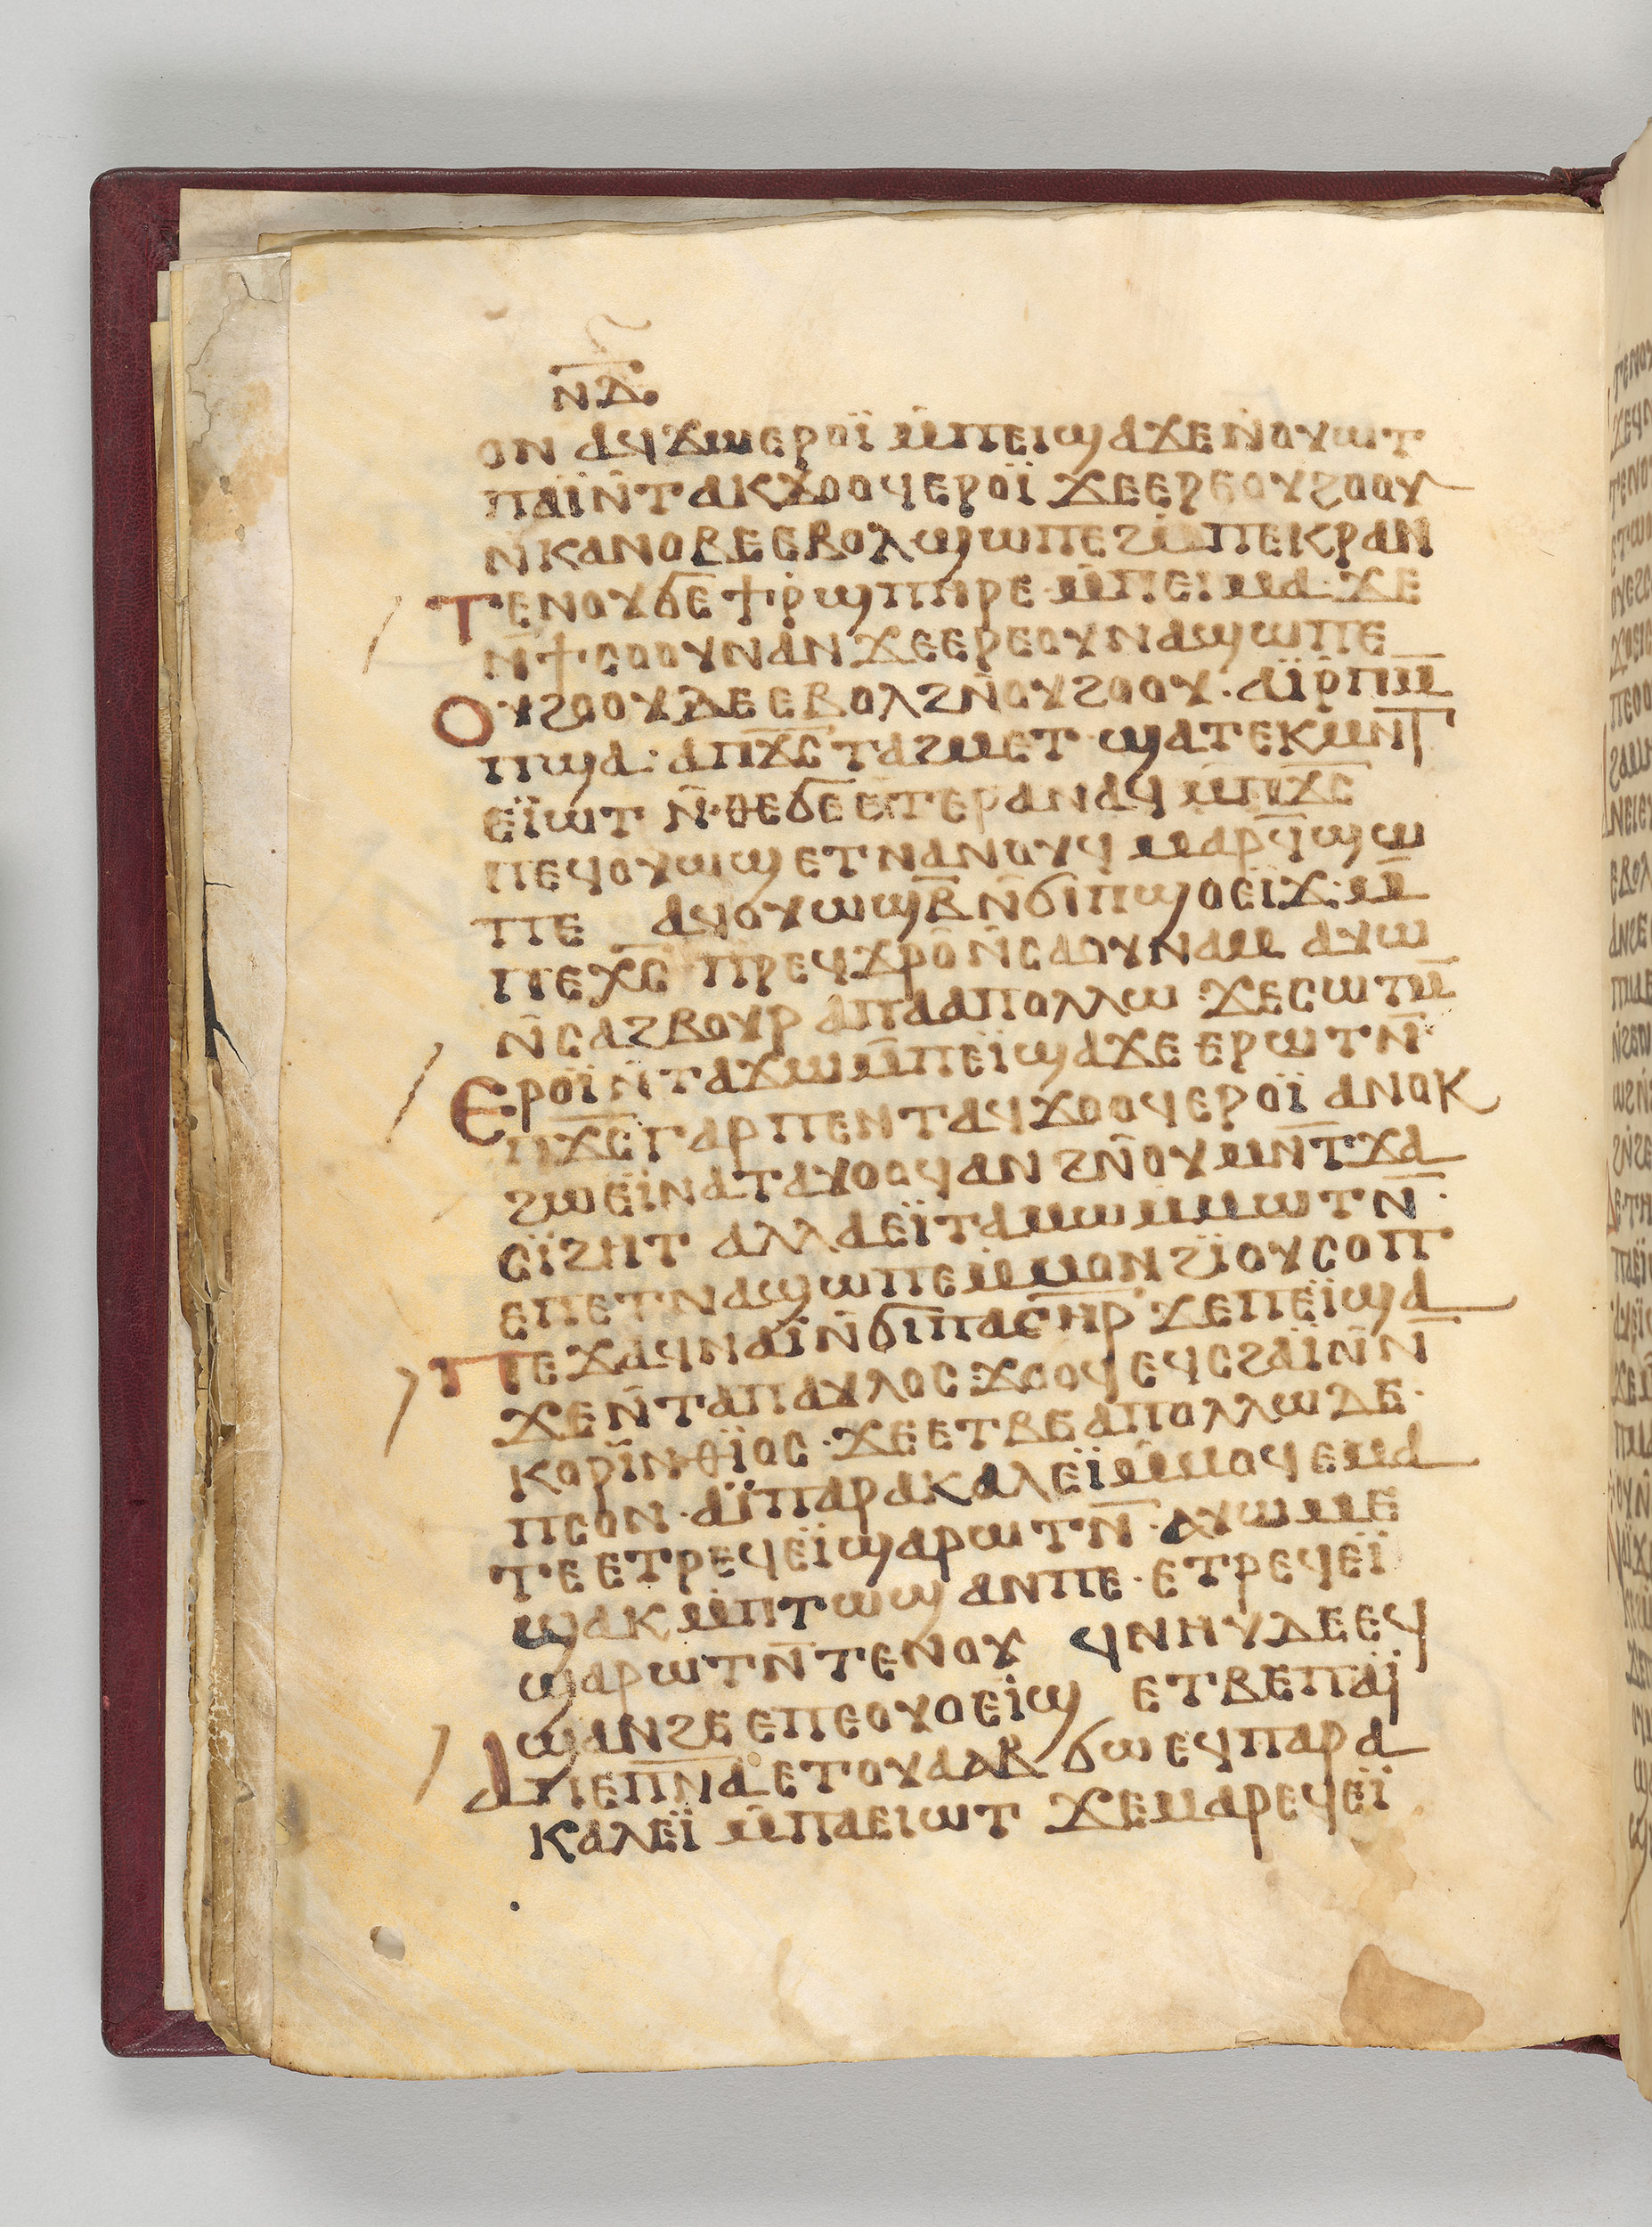 ⲛ̅ⲇ̅
ⲟⲛ ⲁϥϫⲱⲉⲣⲟⲓ̈ ⲙ̄ⲡⲉⲓϣⲁϫⲉⲛ̄ⲟⲩⲱⲧ
ⲡⲁⲓ̈ⲛ̄ⲧⲁⲕϫⲟⲟϥⲉⲣⲟⲓ̈ ϫⲉⲉⲣⲉⲟⲩϩⲟⲟⲩ
ⲛ̄ⲕⲁⲛⲟⲃⲉⲉⲃⲟⲗϣⲱⲡⲉϩⲙ̄ⲡⲉⲕⲣⲁⲛ
ⲧⲉⲛⲟⲩϭⲉϯⲣ̄ϣⲡⲏⲣⲉ·ⲙ̄ⲡⲉⲓⲙⲁ·ϫⲉ
ⲛ̄ϯⲥⲟⲟⲩⲛⲁⲛ ϫⲉⲉⲣⲉⲟⲩⲛⲁϣⲱⲡⲉ
ⲟⲩϩⲟⲟⲩⲇⲉⲉⲃⲟⲗϩⲛ̄ⲟⲩϩⲟⲟⲩ· ⲁⲓ̈ⲣ̄ⲡⲙ̄
ⲡϣⲁ· ⲁⲡⲭ̅ⲥ̅ⲧⲁϩⲙⲉⲧ·ϣⲁⲧⲉⲕⲙⲛ̄ⲧ
ⲉⲓ̈ⲱⲧ ⲛ̄·ⲑⲉϭⲉⲉⲧⲉⲣⲁⲛⲁϥ ⲙ̄ⲡⲭ̅ⲥ̅
ⲡⲉϥⲟⲩⲱϣ ⲉⲧⲛⲁⲛⲟⲩϥ ⲙⲁⲣϥ̄ϣⲱ
ⲡⲉ ⲁϥⲟⲩⲱϣⲃ̄ ⲛ̄ϭⲓⲡϣⲟⲉⲓϫ· ⲙ̄
ⲡⲉⲭ̅ⲥ̅ ⲡⲣⲉϥϫⲣⲟ ⲛ̄ⲥⲁⲟⲩⲛⲁⲙ ⲁⲩⲱ
ⲛ̄ⲥⲁϩⲃⲟⲩⲣ ⲁⲡⲁⲁⲡⲟⲗⲗⲱ ϫⲉⲥⲱⲧⲙ̄
ⲉⲣⲟⲓ̈ⲛ̄ⲧⲁϫⲱⲙ̄ⲡⲉⲓ̈ϣⲁϫⲉⲉⲣⲱⲧⲛ̄·
ⲡⲭ̅ⲥ̅ⲅⲁⲣⲡⲉⲛⲧⲁϥϫⲟⲟϥⲉⲣⲟⲓ̈ ⲁⲛⲟⲕ
ϩⲱⲉⲓ̈ⲛⲁⲧⲁⲩⲟⲟϥⲁⲛ ϩⲛ̄ⲟⲩⲙⲛ̄ⲧϫⲁ
ⲥⲓ̈ϩⲏⲧ ⲁⲗⲗⲁⲉⲓ̈ⲧⲁⲙⲱⲙ̄ⲙⲱⲧⲛ̄·
ⲉⲡⲉⲧⲛⲁϣⲱⲡⲉⲙ̄ⲙⲟⲛ ϩⲓ̈ⲟⲩⲥⲟⲡ
ⲡⲉϫⲁϥⲛⲁⲓ̈ⲛ̄ϭⲓⲡⲁⲥ̅ⲏ̅ⲣ̅ ϫⲉⲡⲉⲓ̈ϣⲁ
ϫⲉⲛ̄ⲧⲁⲡⲁⲩⲗⲟⲥ·ϫⲟⲟϥⲉϥⲥϩⲁⲓ̈ⲛ̄ⲛ̄
ⲕⲟⲣⲓⲛⲑⲓ̈ⲟⲥ·ϫⲉⲉⲧⲃⲉⲁⲡⲟⲗⲗⲱⲇⲉ·
ⲡⲥⲟⲛ·ⲁⲓ̈ⲡⲁⲣⲁⲕⲁⲗⲉⲓ̈ⲙ̄ⲙⲟϥⲉⲙⲁ
ⲧⲉⲉⲧⲣⲉϥⲉⲓ̈ϣⲁⲣⲱⲧⲛ̄·ⲁⲩⲱⲙⲉ
ϣⲁⲕ ⲙ̄ⲡⲧⲱϣ ⲁⲛⲡⲉ·ⲉⲧⲣⲉϥⲉⲓ̈
ϣⲁⲣⲱⲧⲛ̄ⲧⲉⲛⲟⲩ ϥⲛⲏⲩⲇⲉⲉϥ
ϣⲁⲛϩⲉⲉⲡⲉⲟⲩⲟⲉⲓϣ ⲉⲧⲃⲉⲡⲁⲓ̈
ⲁⲡⲉⲡ̅ⲛ̅ⲁ̅ⲉⲧⲟⲩⲁⲁⲃ ϭⲱⲉϥⲡⲁⲣⲁ
ⲕⲁⲗⲉⲓ̈ ⲙ̄ⲡⲁⲉⲓⲱⲧ ϫⲉⲙⲁⲣⲉϥⲉⲓ̈